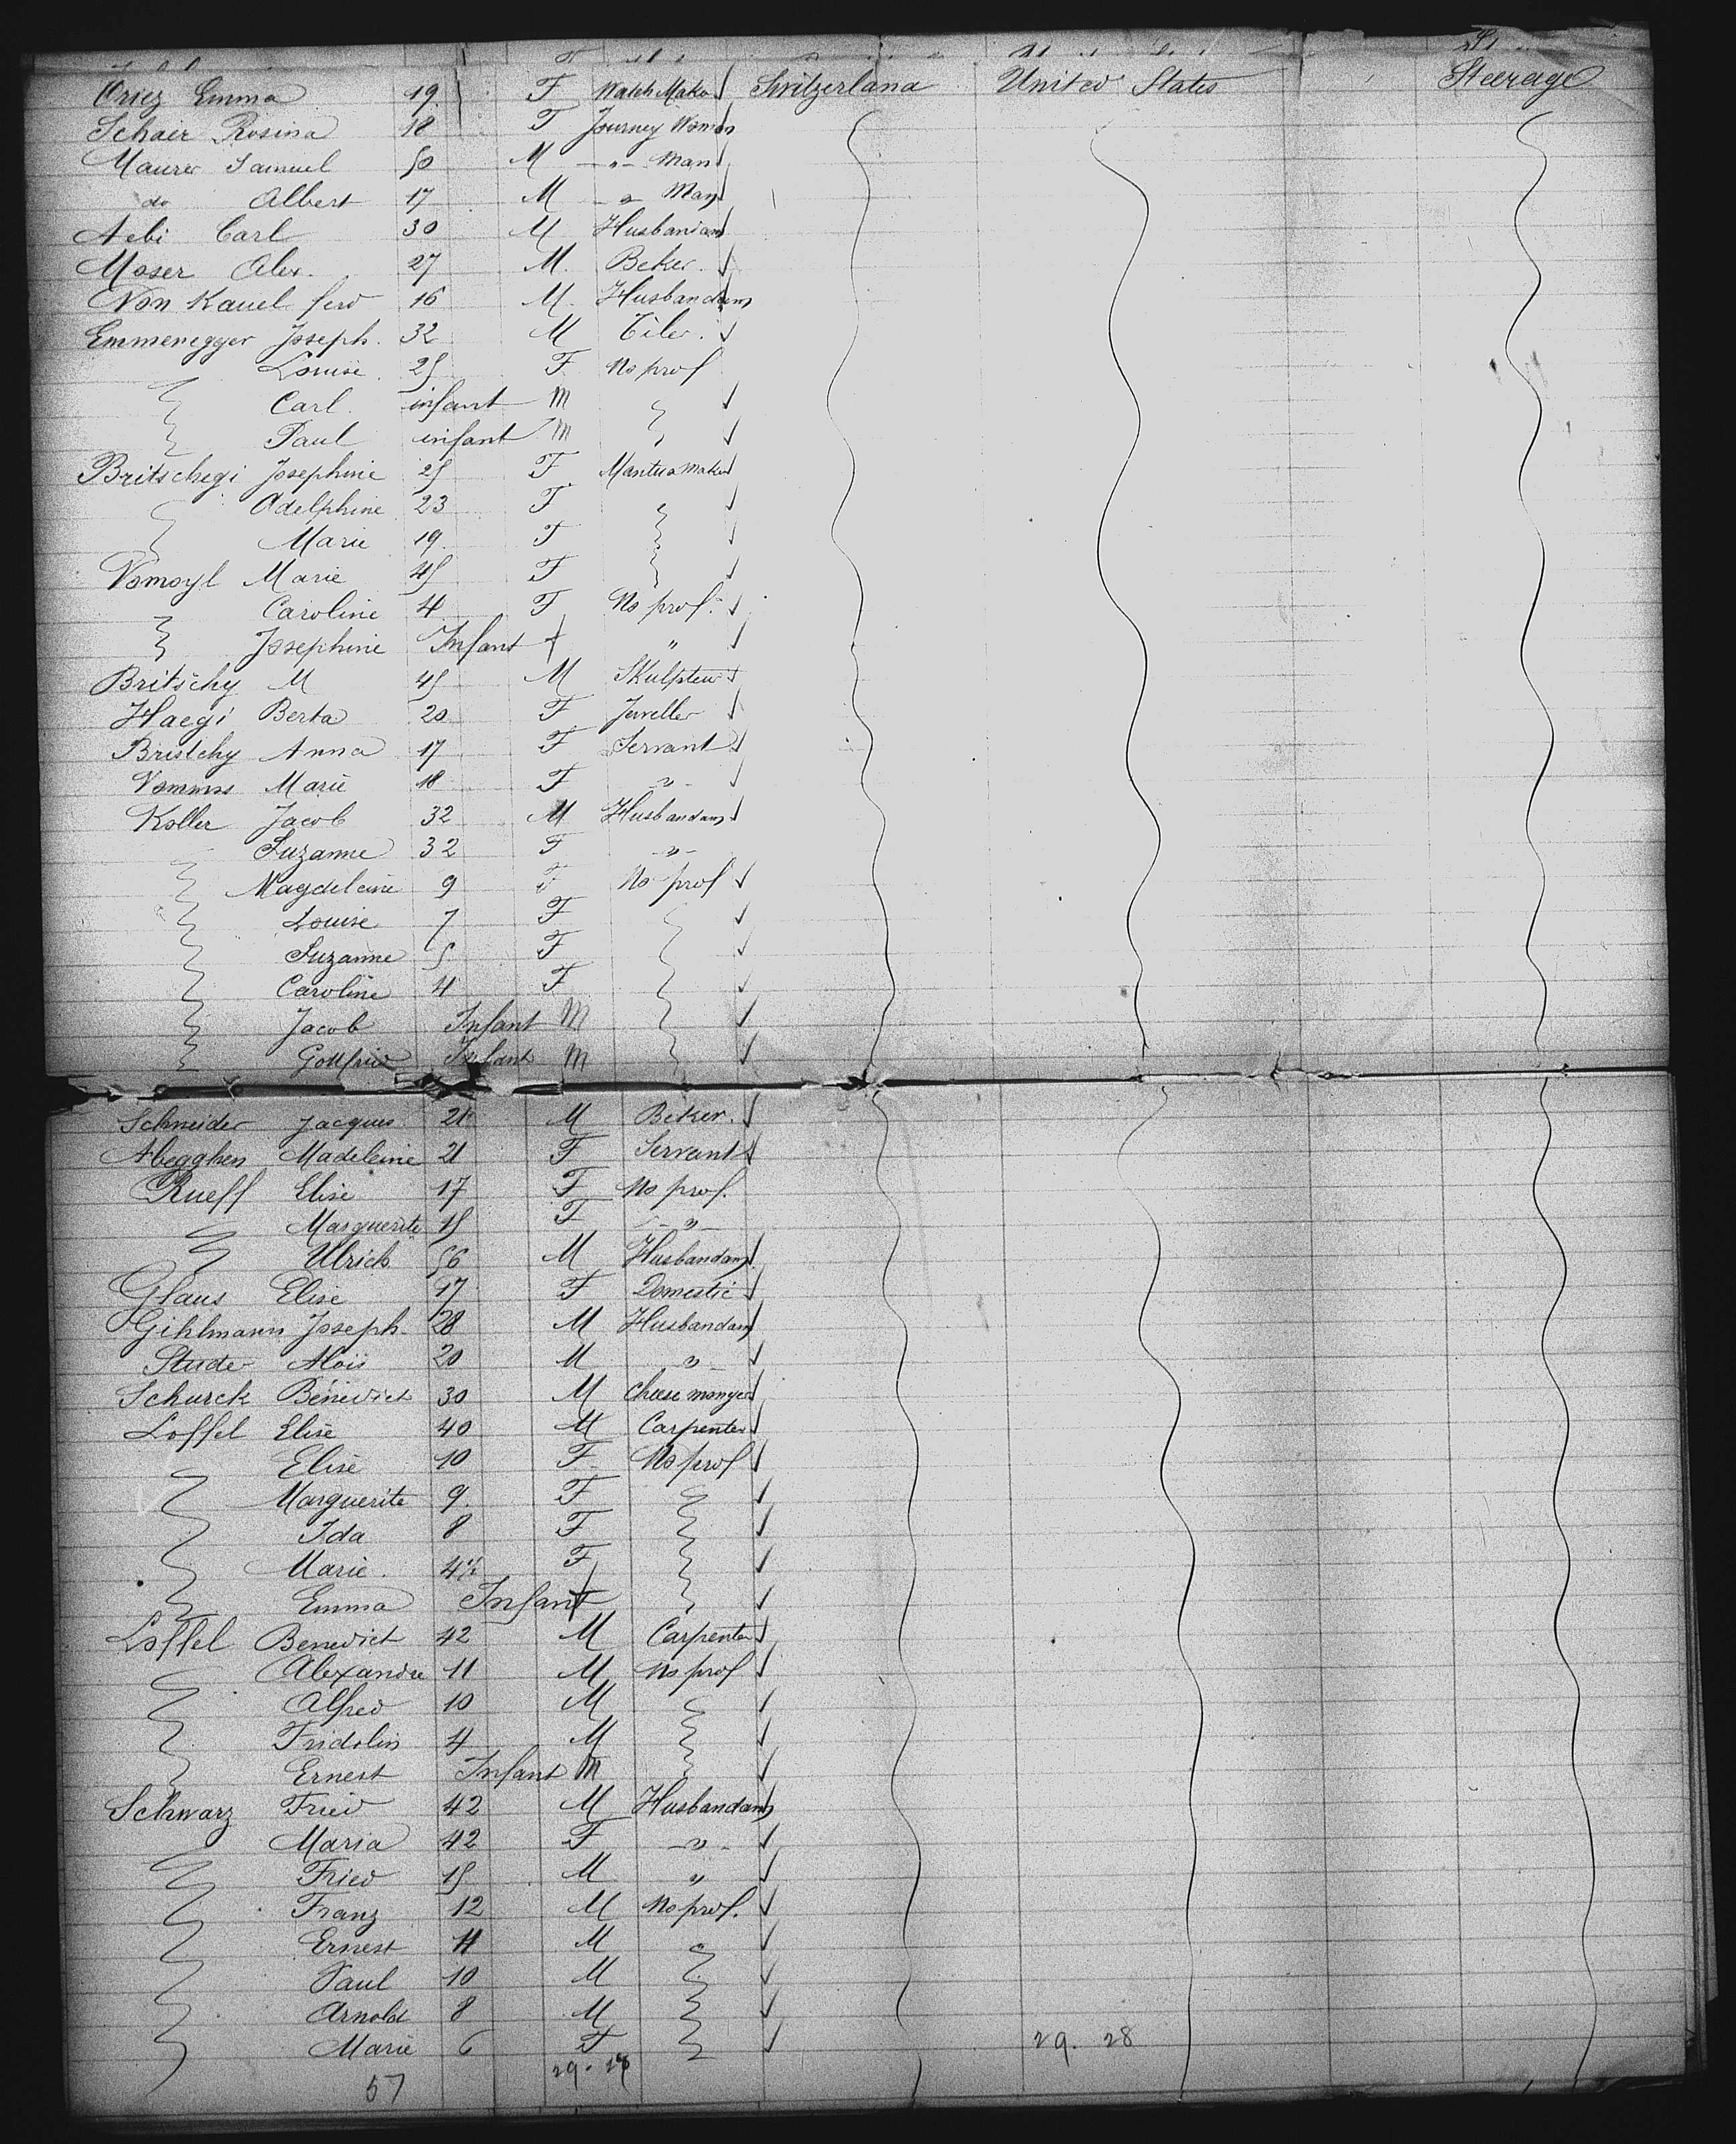 Oriez Emma 19 F Watch Maker Switzerland United States Steerage
Schair Rosina 18 F Journey Woman
Maurer Samuel 50 M -"- Man
do Albert 17 M -"- Man
Aebi Carl 30 M Husbandam
Moser Alex. 27 M. Beker.
Von Kauel ferd 16 M. Husbandam
Emmenegger Joseph. 32 M Tiler.
Louise 25 F No prof
Carl. infant M
Paul infant M
Britschgi Josephine 25 F Mantua maker
Adelphine 23 F
Marie 19 F
Vomoyl Marie 45 F
Caroline 4 F No prof.
Josephine Infant f "
Britschy M 45 M Skulpteur
Haegi Berta 20 F Jeweller
Bristchy Anna 17 F Servant
Marie 18 F -"-
Koller Jacob 32 M Husbandam
Suzanne 32 F -"-
Magdeleine 9 F No prof
Louise 7 F
Suzanne 5 F
Caroline 4 F
Jacob Infant M
Gottfried Infant M
Schneider Jacques 21 M Beker.
Abegghen Madeleine 21 F Servant
Rueff Elise 17 F No prof.
Marguerite 15 F -"-
Ulrich 56 M Husbandam
Glaus Elise 17 F Domestic
Gihlmann Joseph. 28 M Husbandam
Studer Alois 20 M -"-
Schurck Bénédict 30 M Cheese monger
Loffel Elise 40 M Carpenter
Elise 10 F No prof
Marguerite 9. F
Ida 8 F
Marie. 4½ F
Emma Infant f
Loffel Benedict 42 M Carpenter
Alexandre 11 M No prof
Alfred 10 M
Fridolin 4 M
Ernest Infant M
Schwarz Fried 42 M Husbandam
Maria 42 F -"-
Fried 15 M "
Franz 12 M No prof.
Ernest 11 M
Paul 10 M
Arnold 8 M
Marie 6 F
57 29. 28 29. 28